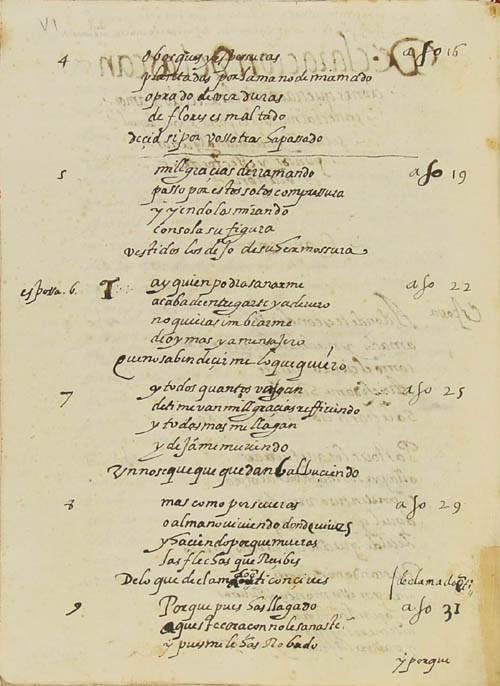 VI
4 o bosques y espesuras a fo 16
plantadas por la mano de mi amado
o prado de verduras
de flores esmaltado
decid si por vosotras ha passado
5 mill gracias derramando a fo 19
passo por estos sotos com pressura
y yendolos mirando
con sola su figura
vestidos los dejo de su hermossura
espossa. 6. ay quien podra sanarme a fo 22
acaba de entregarte ya de vero
no quieras imbiarme
de oy mas ya mensajero
que no saben decirme lo que quiero
7 y todos quantos vagan a fo 25
de ti me van mill gracias refiriendo
y todos mas me llagan
y dejame muriendo
un no se que que quedan balbuciendo
8 mas como perseveras a fo 29
o alma no viviendo donde vives
y haciendo porque mueras
las flechas que Recibes
De lo que del amado en ti concives
9. Porque pues has llagado a fo 31
aqueste coracon no le sanaste
y pues me le has Robado
y porque